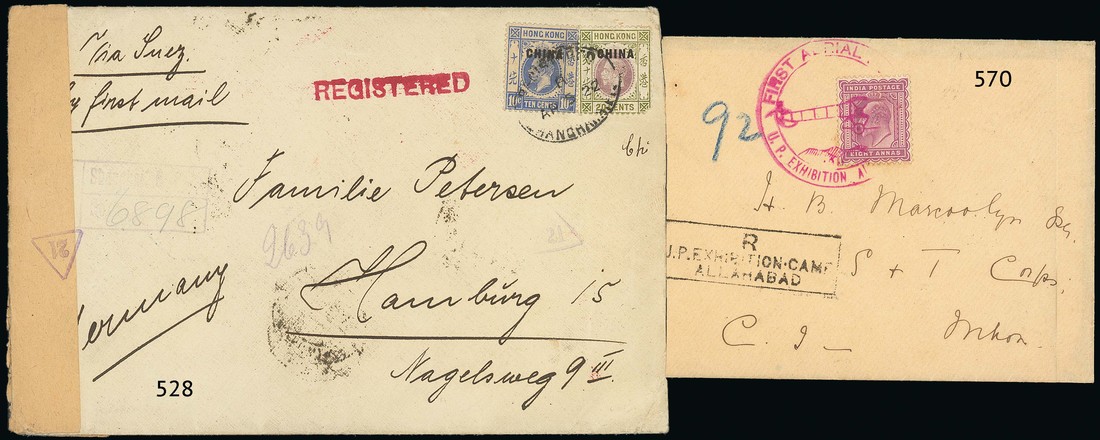 Via Suez.
by first mail
REGISTERED
HONG KONG
CHINA
10C TEN CENTS 10C
HONG KONG
CHINA
20 CENTS
SHANGHAI
22
6898
21
Familie Petersen
2639
Germany
Hamburg 15
Nagelsweg 9 III.
528
570
FIRST AERIAL
U.P. EXHIBITION
INDIA POSTAGE
EIGHT ANNAS
92
R
U.P. EXHIBITION·CAMP
ALLAHABAD
H. B. Marcoolyn Esq.
S + T Corps.
C. I — Mhow.